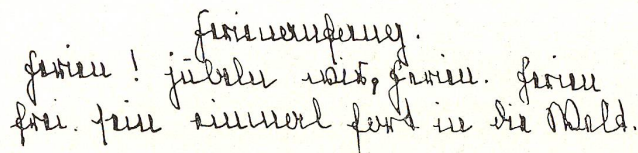 Ferienanfang.
Ferien! jubeln wir, Ferien. Ferien
frei sein einmal fort in die Welt.